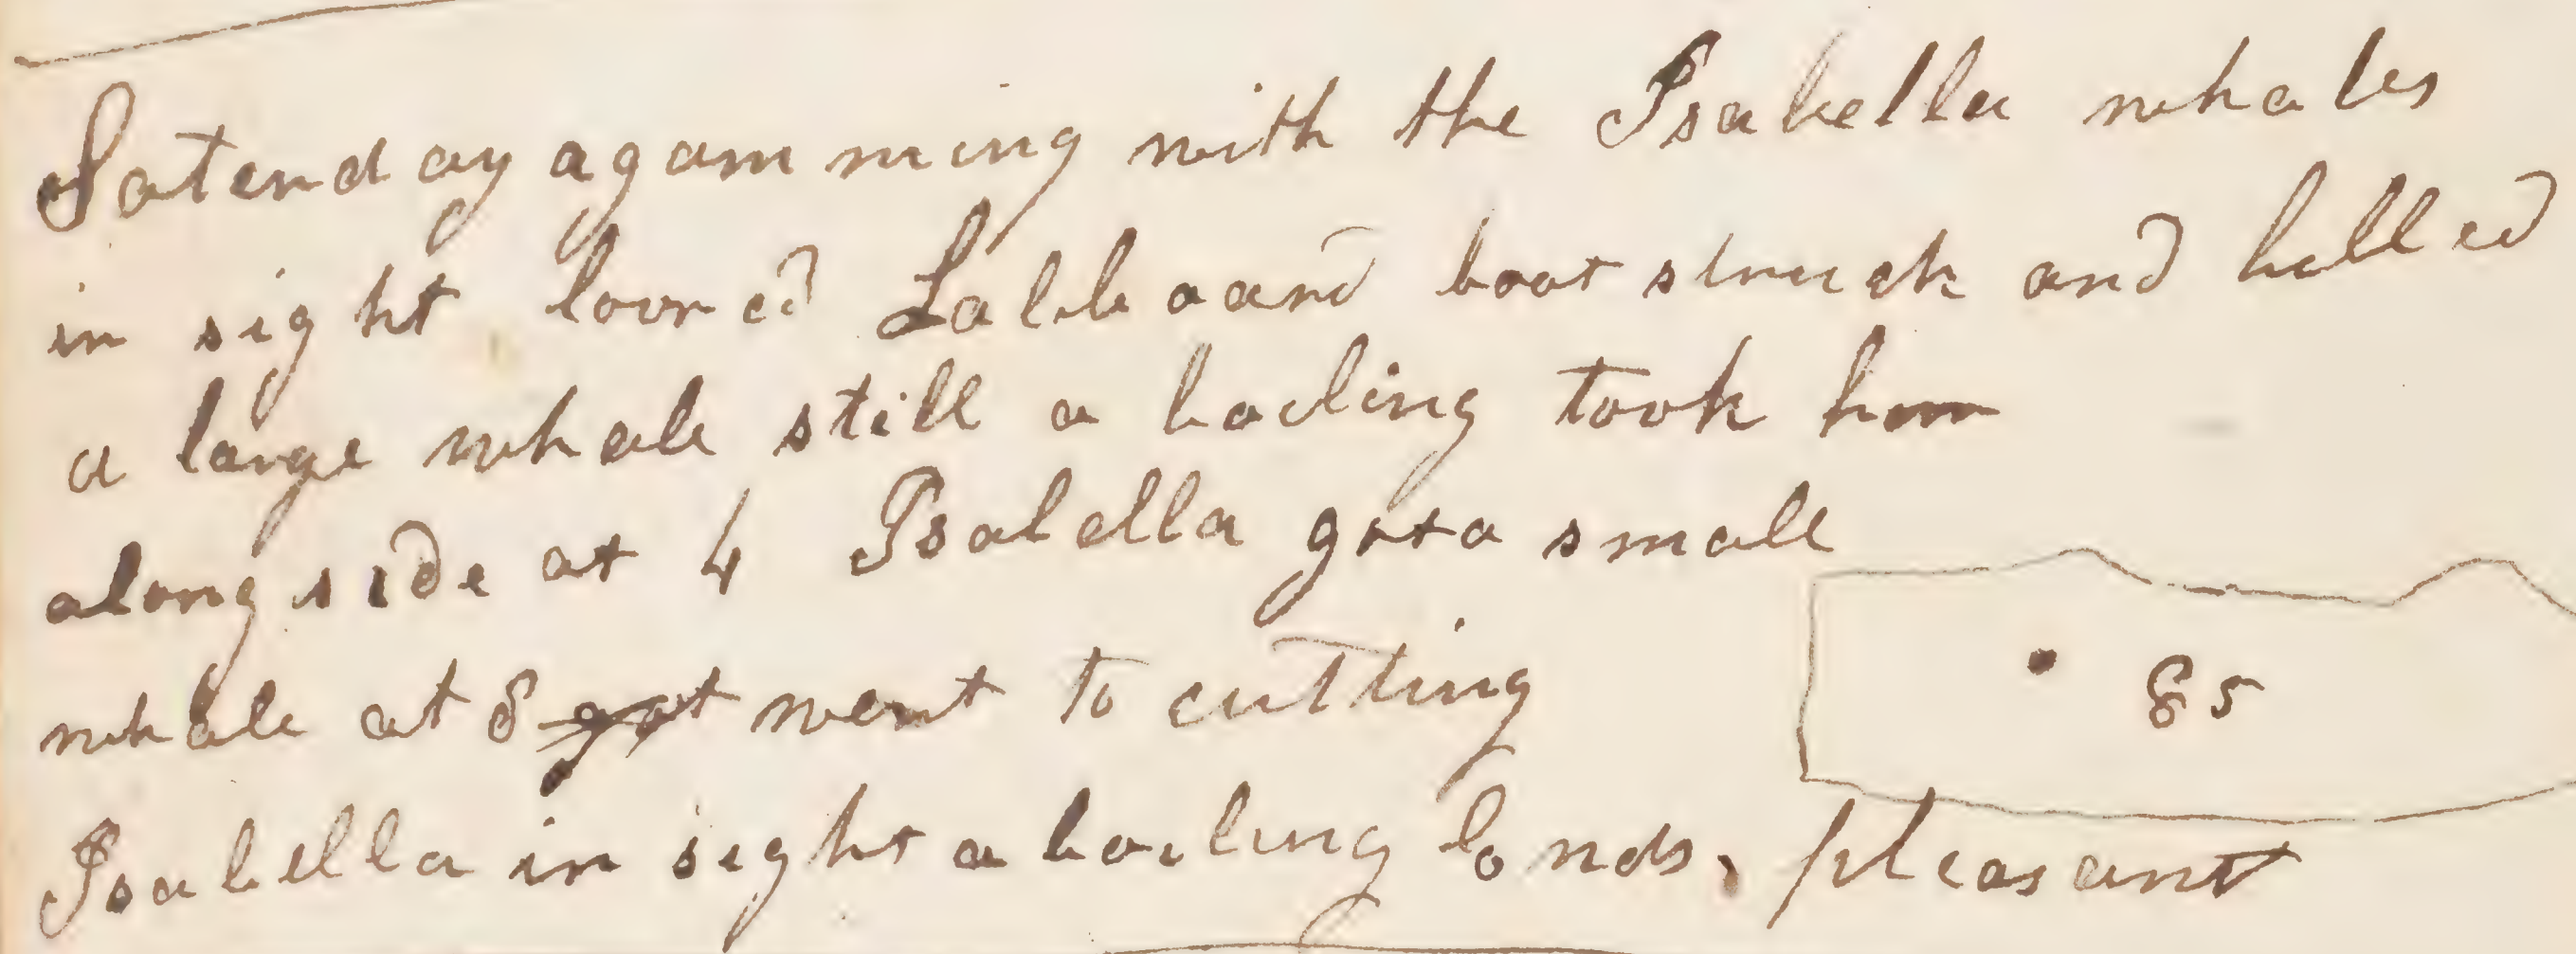 Saterday agamming with the Isabella whales
in sight lowred Lalbboard boat struck and killed
a large whale still a boiling took him
along side at 4 Isabella got a small
whale at 8 got went to cutting
85
Isabella in sight a boiling pleasant